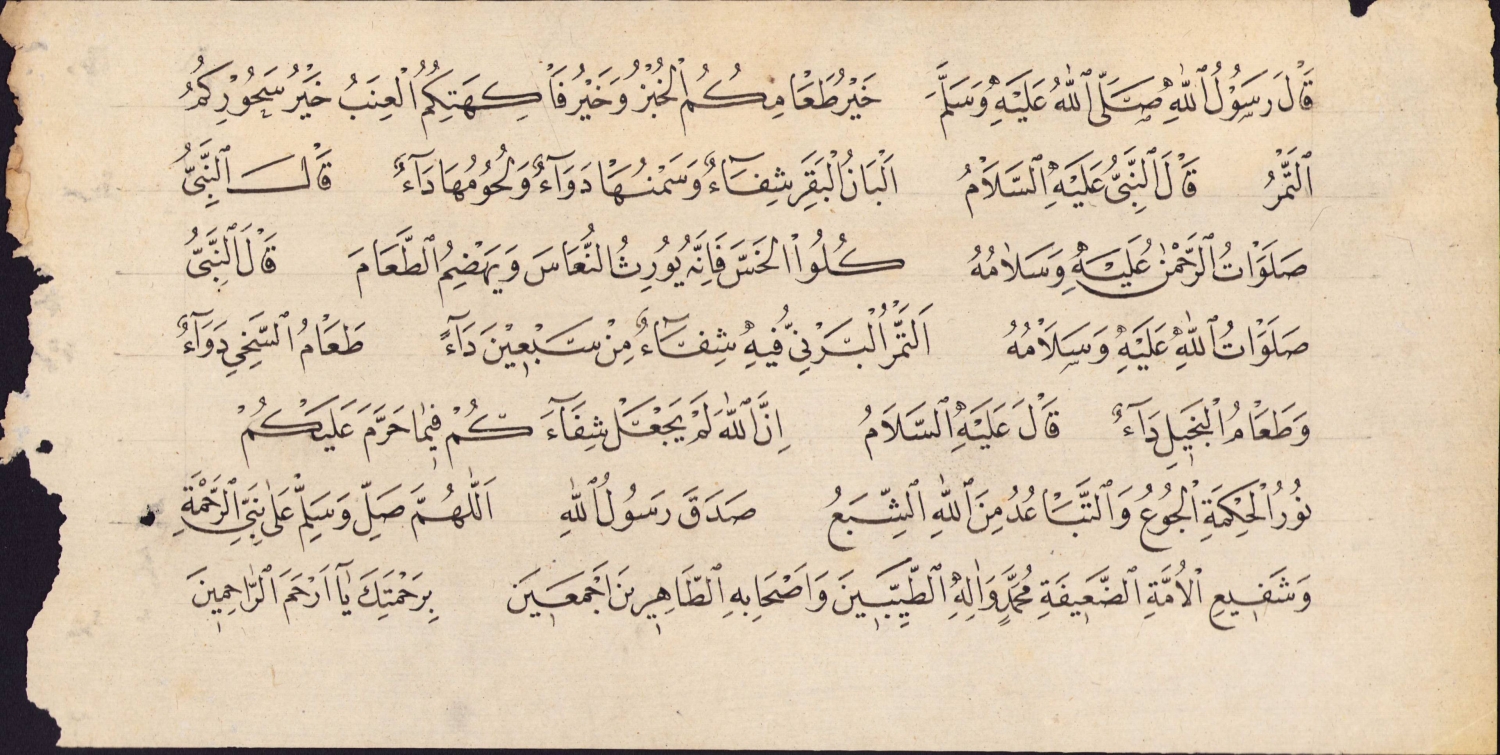 قَالَ رَسُولُ ٱللّٰهِ صَلَّى ٱللّٰهُ عَلَيْهِ وَسَلَّمَ خَيْرُ طَعَامِكُمُ ٱلْخُبْزُ وَخَيْرُ فَاكِهَتِكُمُ ٱلْعِنَبُ خَيْرُ سَحُورِكُمُ
ٱلتَّمْرُ قَالَ ٱلنَّبِىُّ عَلَيْهِ ٱلسَّلَامُ اَلْبَانُ ٱلْبَقَرِ شِفَآءٌ وَسَمْنُهَا دَوَآءٌ وَلُحُومُهَا دَآءٌ قَالَ ٱلنَّبِىُّ
صَلَوَاتُ ٱلرَّحْمٰنِ عَلَيْهِ وَسَلَامُهُ كُلُوا ٱلْخَسَّ فَاِنَّهُ يُورِثُ ٱلنُّعَاسَ وَيَهْضِمُ ٱلطَّعَامَ قَالَ ٱلنَّبِىُّ
صَلَوَاتُ ٱللّٰهِ عَلَيْهِ وَسَلَامُهُ اَلتَّمْرُ ٱلْبَرْنِىُّ فِيهِ شِفَآءٌ مِنْ سَبْعِينَ دَآءً طَعَامُ ٱلسَّخِىِ دَوَآءٌ
وَطَعَامُ ٱلْبَخِيلِ دَآءٌ قَالَ عَلَيْهِ ٱلسَّلَامُ اِنَّ ٱللّٰهَ لَمْ يَجْعَلْ شِفَآءَكُمْ فِيمَا حَرَّمَ عَلَيْكُمْ
نُورُ ٱلْحِكْمَةِ ٱلْجُوعُ وَٱلتَّبَاعُدُ مِنَ ٱللّٰهِ ٱلشِّبَعُ صَدَقَ رَسُولُ ٱللّٰهِ اَللّٰهُمَّ صَلِّ وَسَلِّمْ عَلٰى نَبِىِّ ٱلرَّحْمَةِ
وَشَفِيعِ ٱلْاُمَّةِ ٱلضَّعِيفَةِ مُحَمَّدٍ وَاٰلِهِ ٱلطَّيِّبِينَ وَاَصْحَابِهِ ٱلطَّاهِرِينَ اَجْمَعِينَ بِرَحْمَتِكَ يَآ اَرْحَمَ ٱلرَّاحِمِينَ